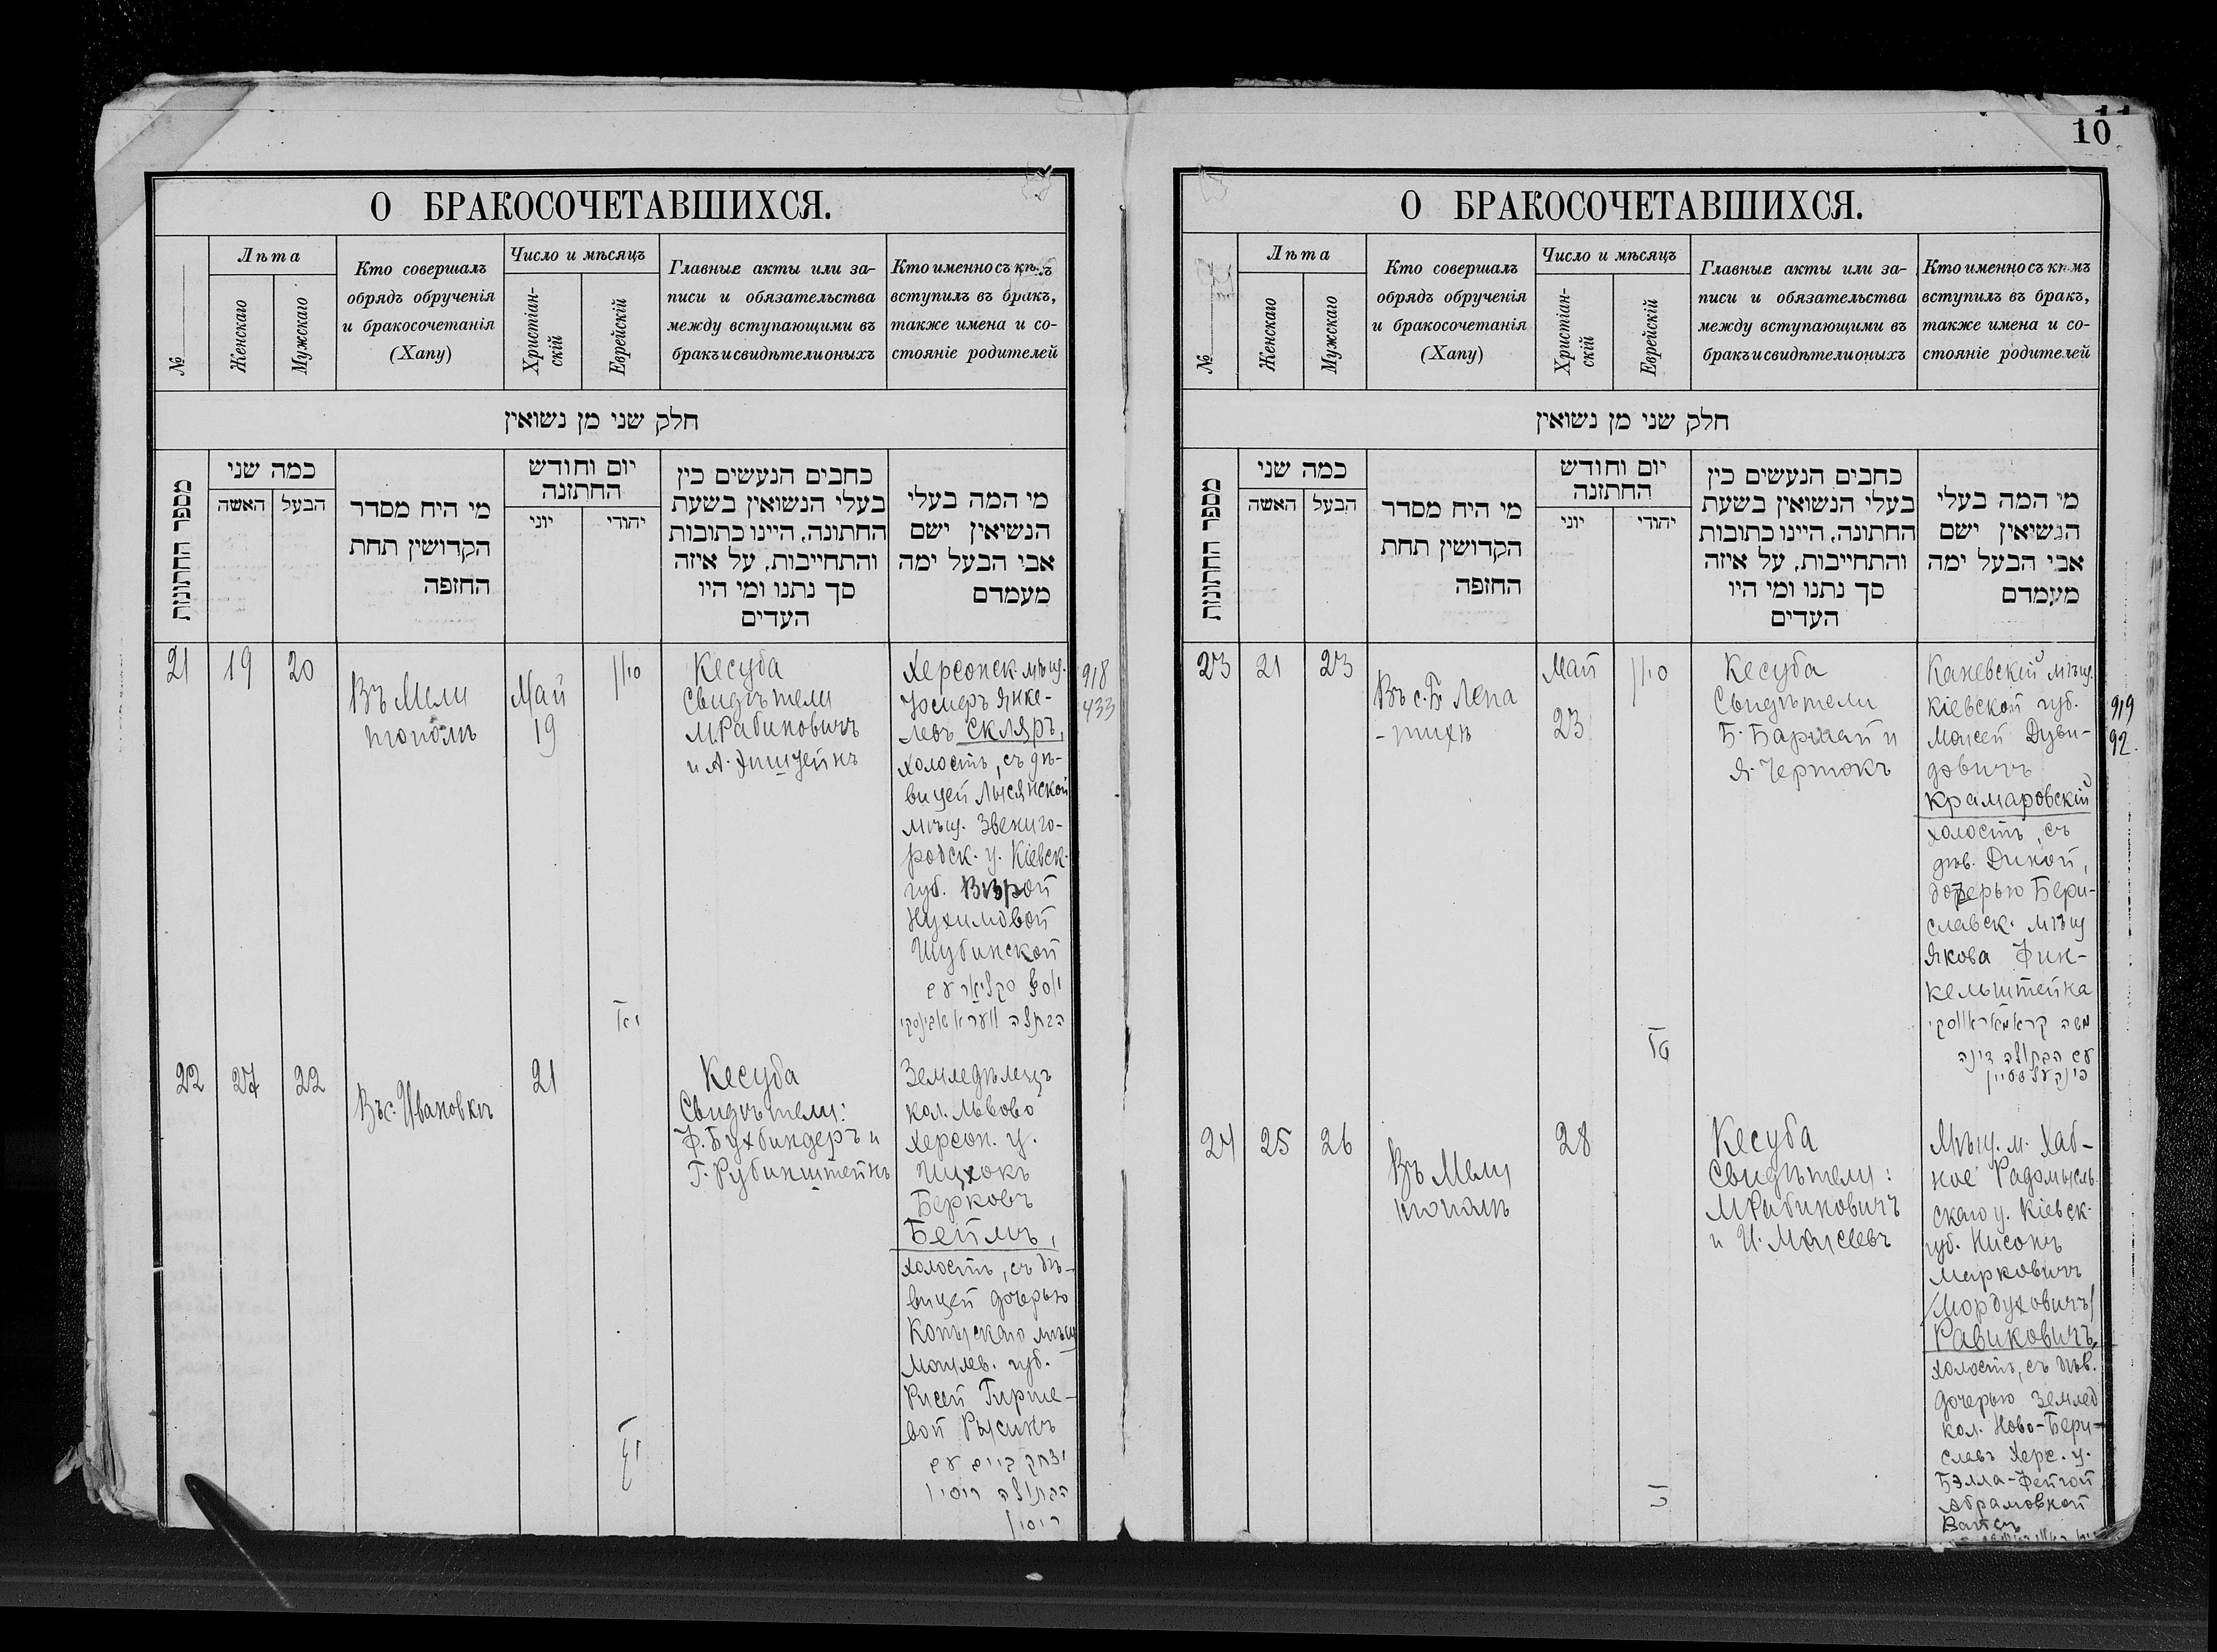 10
О БРАКОСОЧЕТАВШИХСЯ.
№
Лѣта
Женскаго
Мужскаго
Кто совершалъ
обрядъ обрученія
и бракосочетанія
(Хапу)
Число и мѣсяцъ
Христіан-
скій
Еврейскій
Главные акты или за-
писи и обязательства
между вступающими въ
бракъ и свидѣтели оныхъ
Кто именно съ кѣмъ
вступилъ въ бракъ,
также имена и со-
стояніе родителей
חלק שני מן נשואין
מספר החתונות
כמה שני
האשה
הבעל
מי היח מסדר
הקדושין תחת
החופה
יום וחודש
החתונה
יוני
יהודי
כחבים הנעשים כין
בעלי הנשואין בשעת
החתונה, היינו כתובות
והתחייבות, על איזה
סך נתנו ומי היו
העדים
מי המה בעלי
הנשיאין ישם
אבי הבעל ימה
מעמדם
21
19
20
Въ Мели
тополѣ
Май
19
סיון
יא
Кесуба
Свидѣтели
М. Рабиновичъ
и А.
Херсонск. мѣщ.
Іосифъ Янке-
левъ Скляръ,
холостъ, съ дѣ-
вицей Лысянской
мѣщ. Звениго-
родск. у. Кіевск.
губ. Вѣрой
Нухимовой
Шубинской
יוסף סקליאר עם
הבתולה ווערא שובינסקי
918
433
22
27
22
Въ с. Ивановкѣ
21
יג
Кесуба
Свидѣтели:
Ф. Бухбиндеръ и
Г. Рубинштейнъ
Земледѣлецъ
кол. Львово
Херсон. у.
Ицхокъ
Берковъ
Беймъ,
холостъ, съ дѣ-
вицей дочерью
Копысскаго мѣщ
Могилев. губ.
Рисей Гирше-
вой Рысинъ
יצחק ביים עם
הבתולה ריסי
ריסין
О БРАКОСОЧЕТАВШИХСЯ.
№
Лѣта
Женскаго
Мужскаго
Кто совершалъ
обрядъ обрученія
и бракосочетанія
(Хапу)
Число и мѣсяцъ
Христіан-
скій
Еврейскій
Главные акты или за-
писи и обязательства
между вступающими въ
бракъ и свидѣтели оныхъ
Кто именно съ кѣмъ
вступилъ въ бракъ,
также имена и со-
стояніе родителей
חלק שני מן נשואין
מספר החתונות
כמה שני
האשה
הבעל
מי היח מסדר
הקדושין תחת
החופה
יום וחודש
החתונה
יוני
יהודי
כחבים הנעשים כין
בעלי הנשואין בשעת
החתונה, היינו כתובות
והתחייבות, על איזה
סך נתנו ומי היו
העדים
מי המה בעלי
הנשיאין ישם
אבי הבעל ימה
מעמדם
23
21
23
Въ с. Б. Лепа
-тихѣ
Май
23
סיון
טו
Кесуба
Свидѣтели
Б. Баршай и
Я. Чертокъ
Каневскій мѣщ.
Кіевской губ.
Моисей Дуви-
довичъ
Крамаровскій
холостъ, съ
дѣв. Диной,
дочерью Бери-
славск. мѣщ
Якова Фин-
кельштейна
משה קראמאראווסקי
עם הבתולה דינה
פינקעלשטיין
919
92.
24
25
26
Въ Мели
тополѣ
28
כ
Кесуба
Свидѣтели:
М. Рабиновичъ
и И. Моисеевъ
Мѣщ. м. Хаб-
ное Радомысль
скаго у. Кіевск.
губ. Нисонъ
Марковичъ
/Мордуховичъ/
Равиковичъ,
холостъ, съ дѣв.
дочерью землед
кол. Ново-Бери-
славъ Херс. у.
Бэлла-Фейгой
Абрамовной